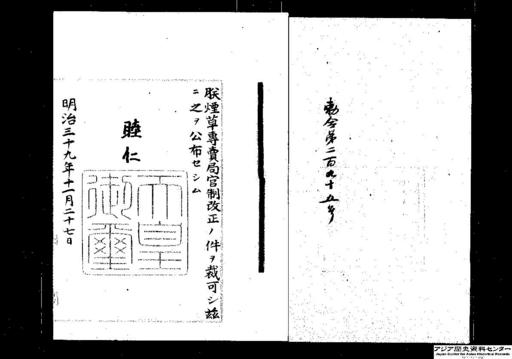 勅令第二百九十五号
朕煙草專賣局官制改正ノ件ヲ裁可シ茲
ニ之ヲ公布セシム
睦仁
天皇
御璽
明治三十九年十一月二十七日
アジア歴史資料センター
Japan Center for Asian Historical Records